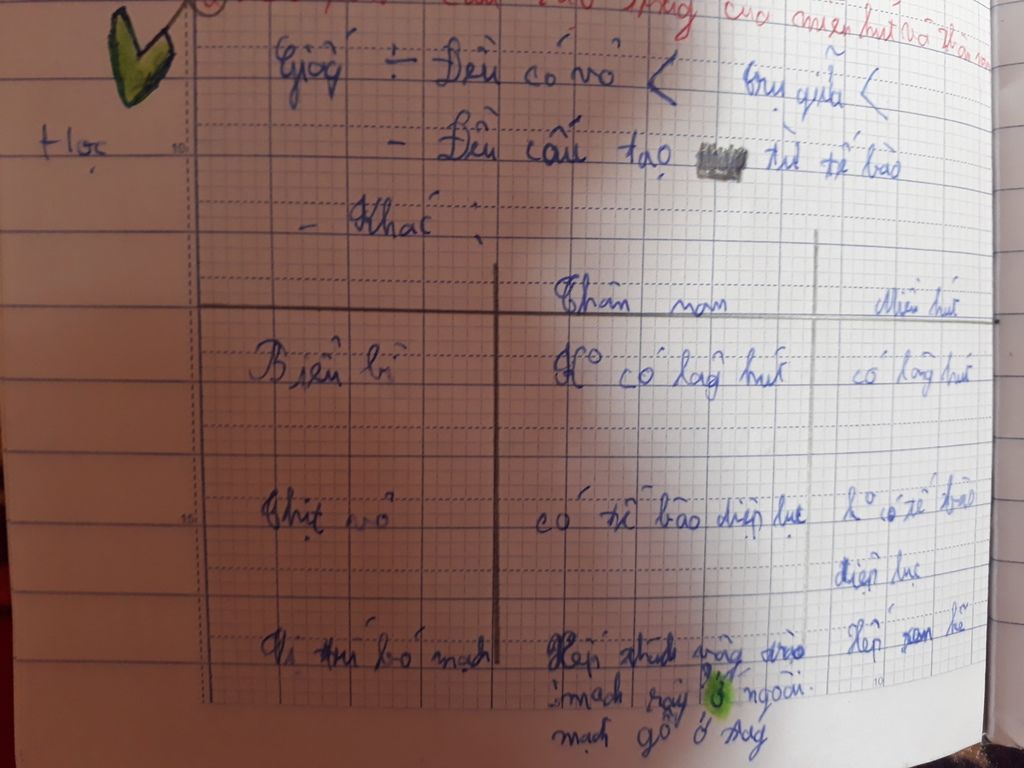 của miền hút và thân non
Giốg ÷ Đều có vỏ < trụ giữa <
+ lọc
- Đều cấu tạo từ tế bào
- Khác :
Thân non Miền hút
Biểu bì K⁰ có lôg hút có lông hút
Thịt vỏ có tế bào diệp lục k⁰ có tế bào
diệp lục
Vị trí bó mạch Xếp thành vòng Xếp xen kẽ
mạch rây ở ngoài.
mạch gỗ ở trog